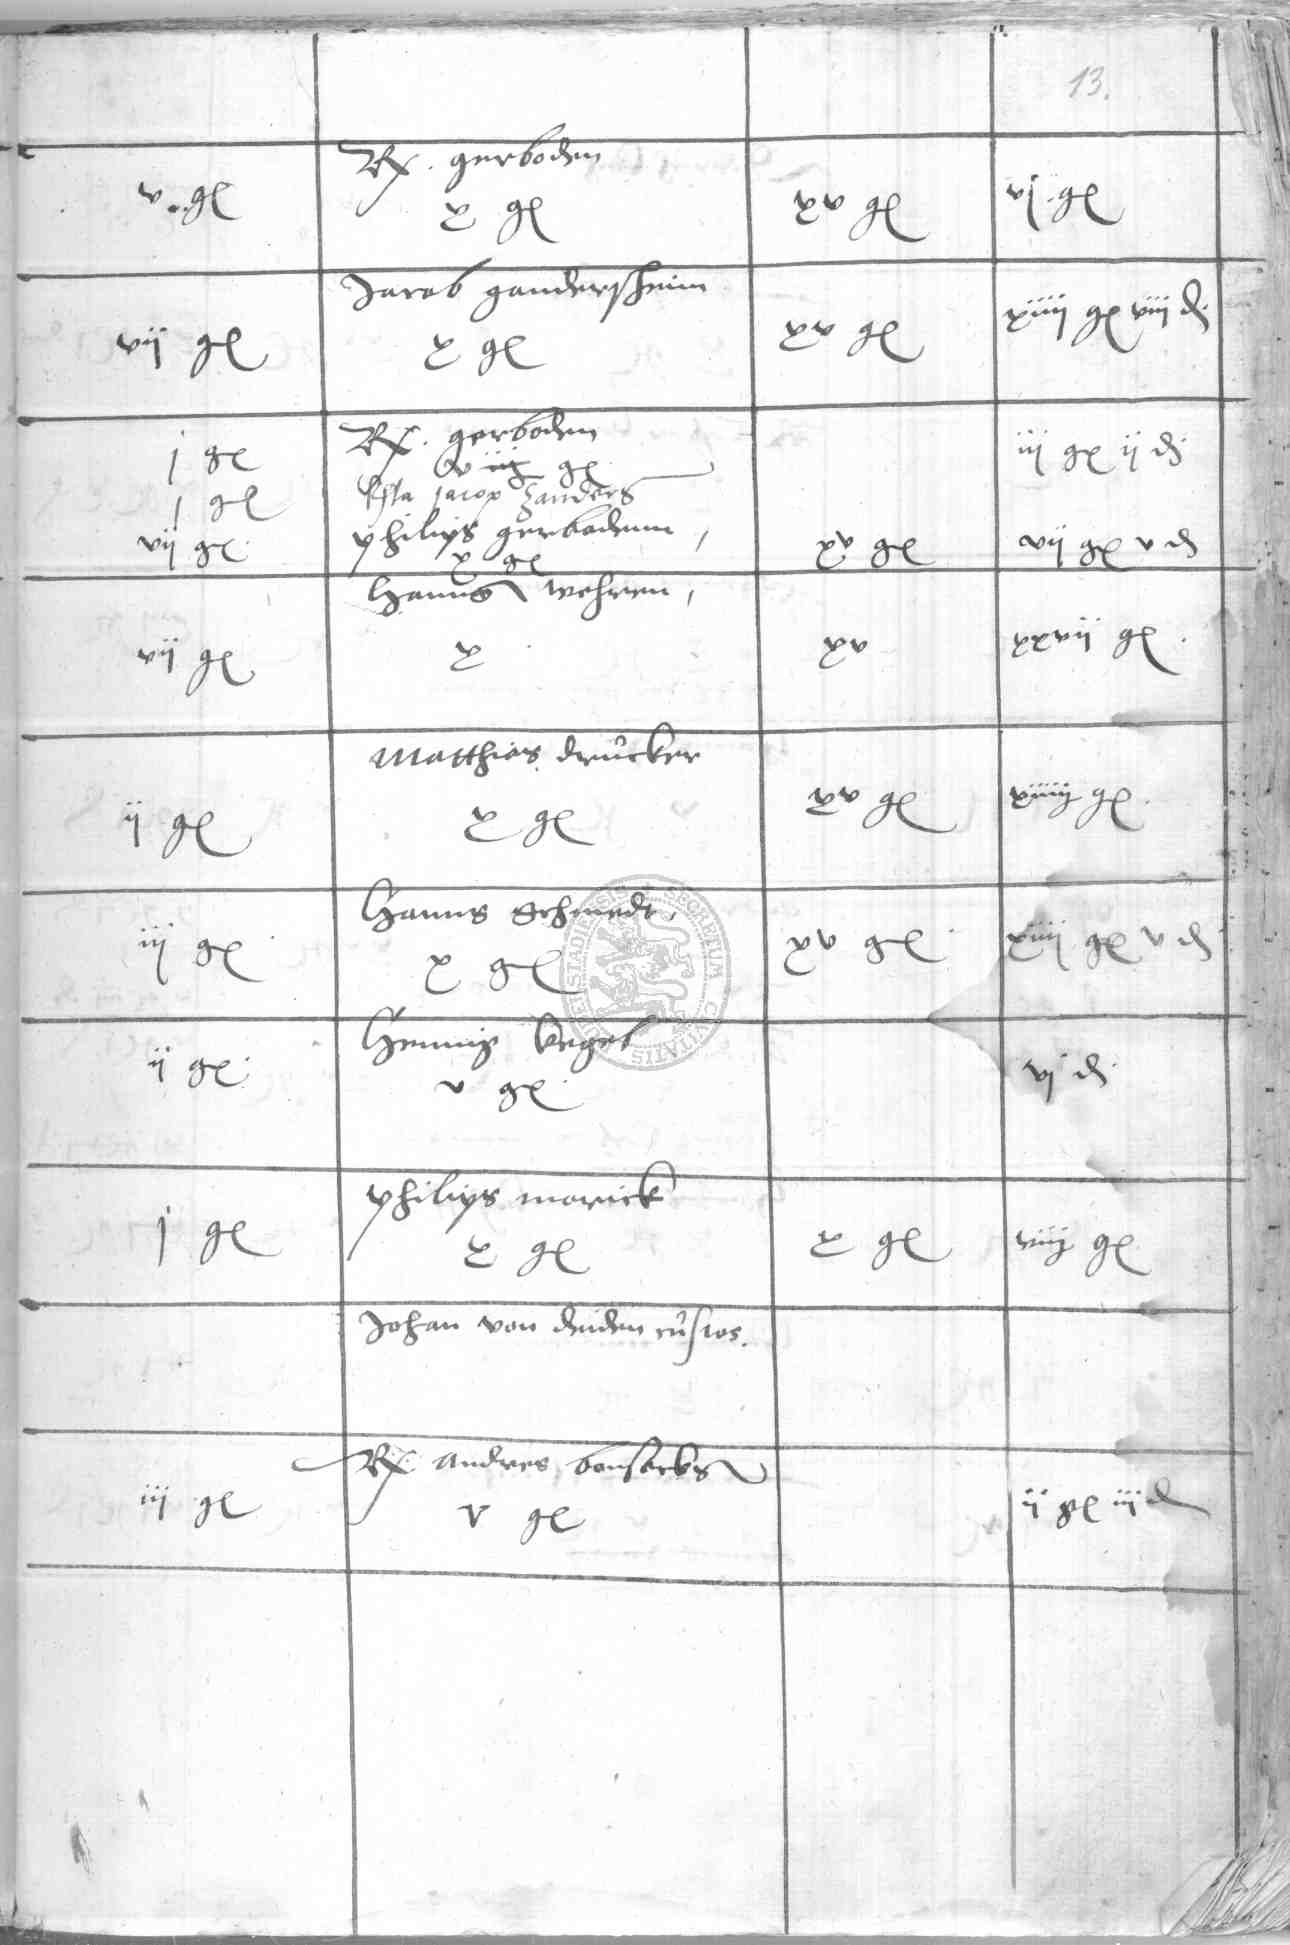 13.
Rx. gerboden
v. gl x gl xv gl vj. gl
Jacob gandersheim
vij gl x gl xv gl xiiij gl viij d.
Rx. gerboden
j gl viiij gl iij gl ij d.
j gl Jacop Zanders
vij gl philips gerbodenn, xv gl vij gl v d
x gl
Hanns wehren,
vij gl x xv xxvij gl.
Matthias drůcker
ij gl x gl xv gl xiiij gl.
Hanns Schmedt,
iij gl x gl xv gl xiiij gl v d
Hennig Vegel
ij gl. v gl. vj d.
philips marick
j gl x gl x gl viiij gl
Johan von
Rx. Andres
iij gl v gl ij gl iij d
SECRETUM CIVITATIS